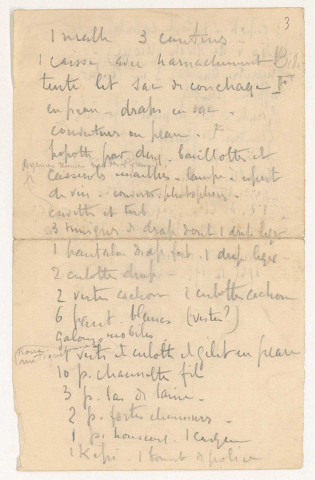 3
1 malle 3 cantines
1 caisse avec harnachement
tente lit sac de couchage
en peau - draps en sac -
couverture en peau -
popotte pour deux - bouillotte et
casserole émaillées - lampe -
de vin - photophore -
cuvette et tub
3 tuniques de drap dont 1 drap léger
1 pantalon drap fort. 1 drap léger
2 culottes drap -
2 vestes cachou 1 culotte cachou
6 pant. blancs (vestes?)
Galons mobiles
1 veste et culotte et gilet en peau
10 p. chaussettes fil
3 p. bas de laine -
2 p. fortes chaussures -
1 p. housseaux.
1 Képi. 1 bonnet de police